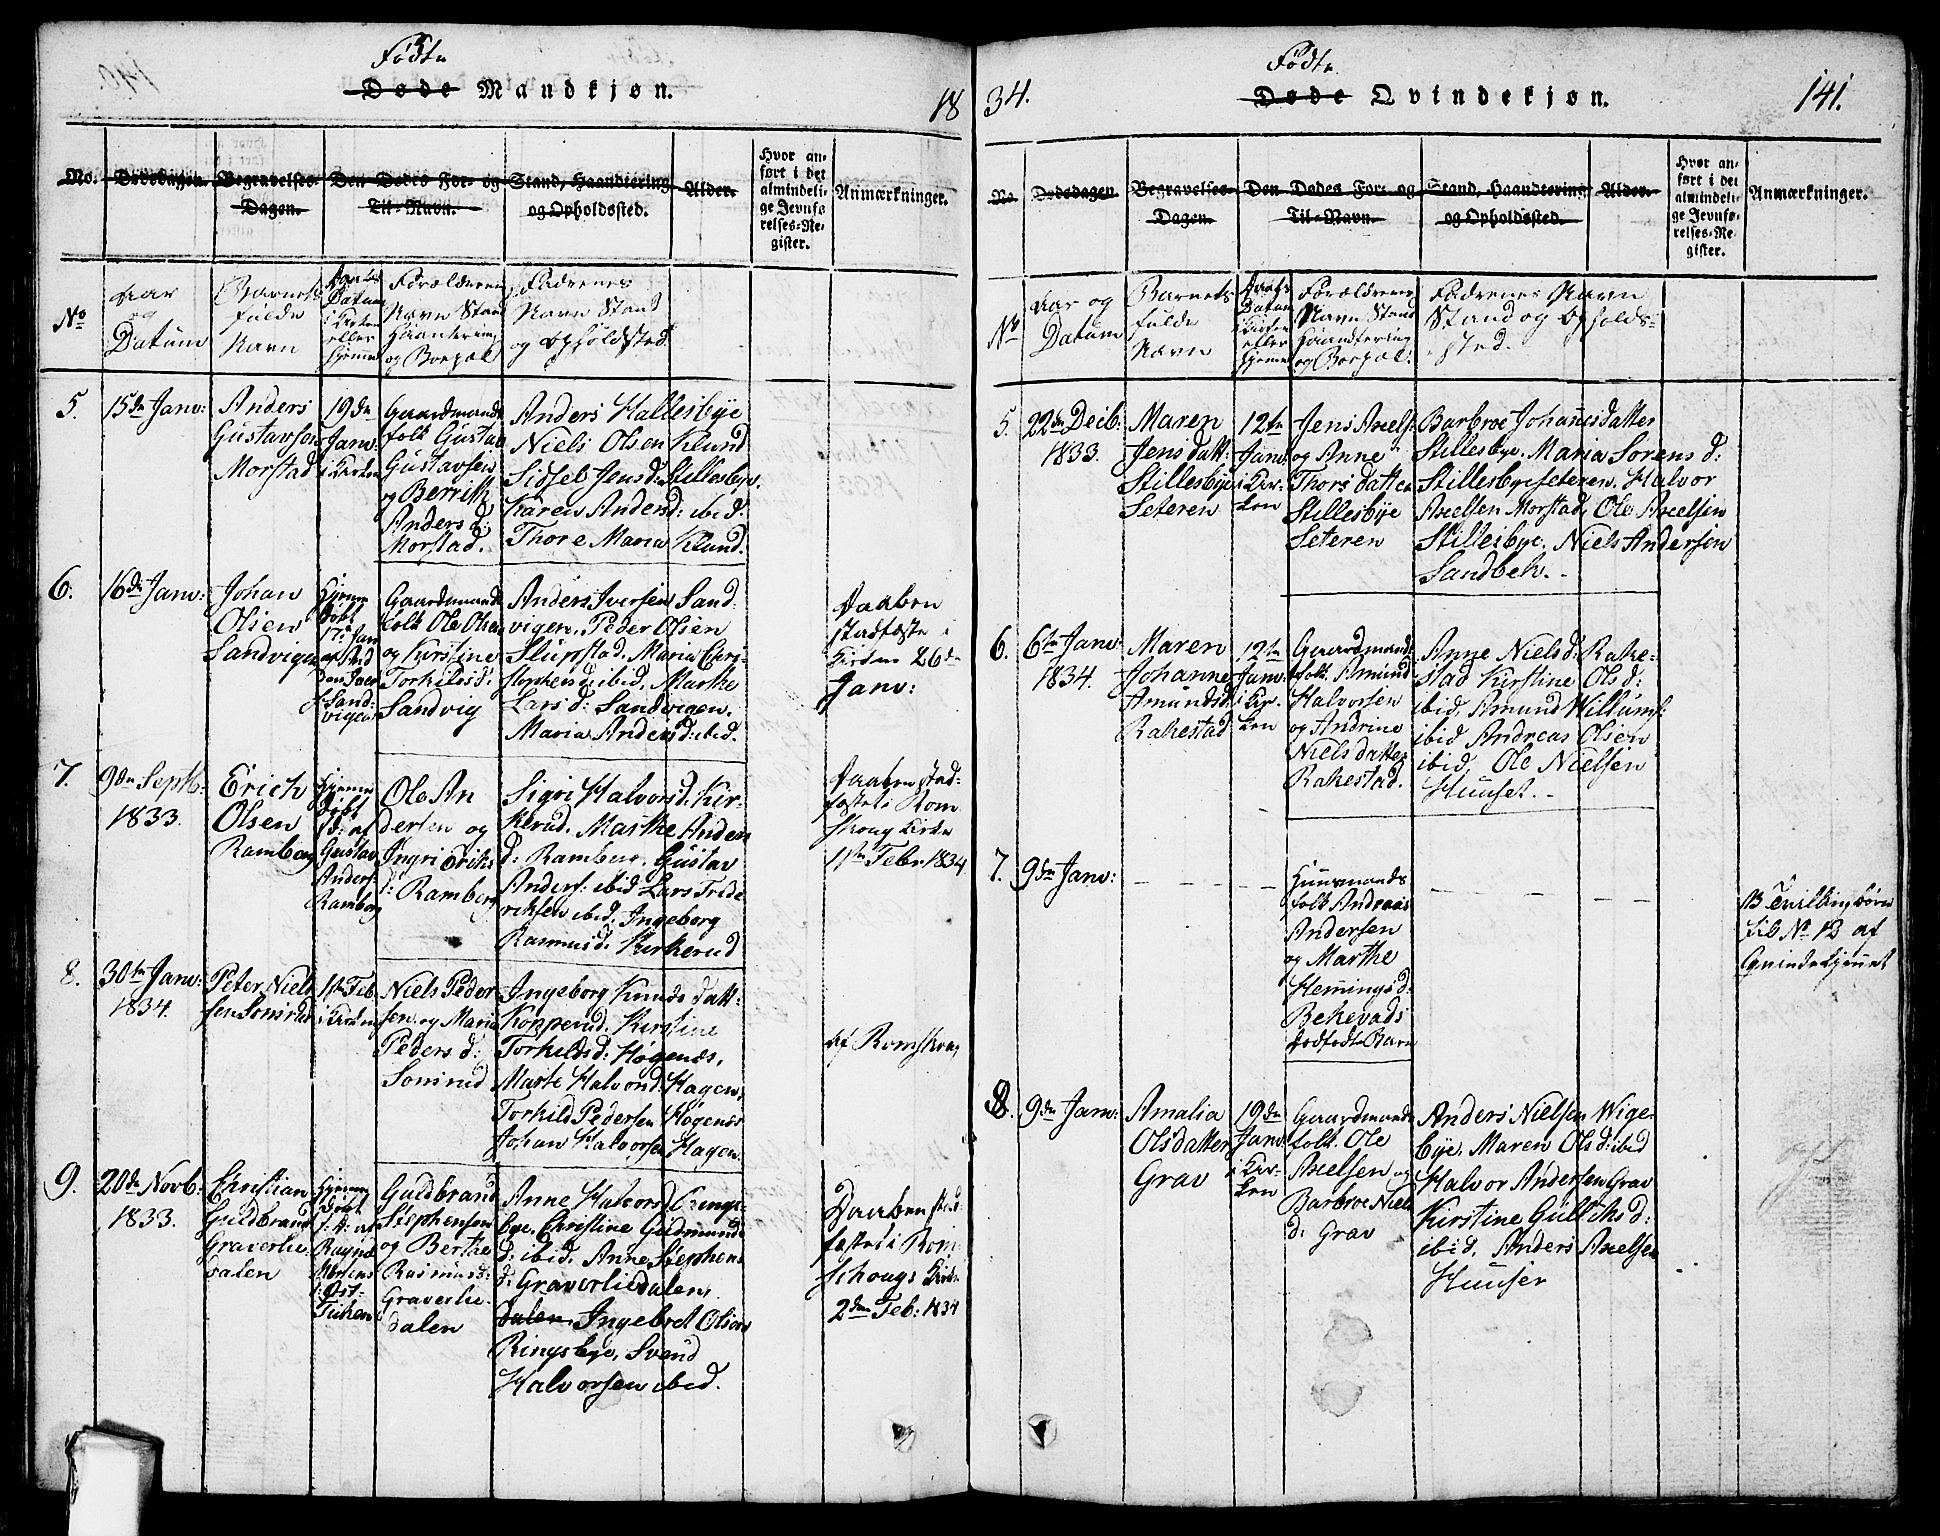 Fødte
Døde Mandkjøn.
18
No. Dødsdagen. Begravelses-Dagen. Den Dødes For- og Til-Navn. Stand, Haandtering og Opholdssted. Alder. Hvor anført i det almindelige Jevnførelses-Register. Anmærkninger.
No
Aar
og
Datum
Barnets
fulde
Navn
Daabs
Datum
i Kirken
eller
hjemme
Forældrenes
Navn Stand
Haantering
og Boepæl
Fadrenes
Navn Stand
og Opholdsted
5.
15de Janv:
Anders
Gustavson
Morstad
19de
Janv:
i Kirken
Gaardmands
folk Gustav
Gustavsen
og Berrith
Anders d:
Morstad.
Anders Hallesbye
Niels Olsen Klund
Sidsel Jens d: Stillesbye.
Karen Anders d: ibid:
Thore Maria Klund.
6.
16de Janv:
Johan
Olsen
Sandvigen
Hjemme
døbt
17de Jan
af And
Sand-
vigen
Gaardsmands
folk Ole Olsen
og Kirstine
Torkilds d:
Sandvig
Anders Iversen Sand-
vigen, Peder Olsen
Slupstad, Maria Chri-
stophers d: ibid, Marthe
Lars d: Sandvigen.
Maria Anders d: ibid.
Daaben
stadfæste i
Kirken 26de
Janv:
7.
9de Septb:
1833.
Erich
Olsen
Ramberg
Hjemme
Døbt
s: D: af
Gustav
Anders:
Ramberg
Ole An
dersen og
Ingri Eriks
d: Ramberg
Sigri Halvors d: Kir-
kerud, Marthe Anders
d: Ramberg, Gustav
Anders: ibid Lars Fride
riksen ibid, Ingeborg
Rasmus d: Kirkerud
Daaben stad-
fæstet i Rom
skoug Kirke
1ste Febr 1834
8.
30te Janv:
1834.
Peter Niel-
sen Somrud
1ste Feb
i Kirken
Niels Peder
sen og Maria
Peders d:
Somrud
Ingeborg Knuds datt:
Kopperud, Kirstine
Torkilds d: Høgenæs,
Marte Halvors d: Hagen,
Torkild Pedersen Høgenæs
Johan Halvorsen Hagen:
af Romskoug
9.
20de Novb:
1833.
Christian
Guldbrand
Graverlie
dalen
Hjemme
Døbt
s. D: af
Tukun
Guldbrand
Stephensen
og Berthe
Rasmus d:
Graverlie-
dalen
Anne Halvors d Rings-
bye, Christine Gudmunds
d: ibid. Anne Stephens
d: Graverliedalen,
dalen, Ingebret Olsen
Ringsbye, Svend
Halvorsen ibid.
Daaben stad-
fæstet i Rom-
skougs Kirke
2den Feb: 1834
Fødte
34. Døde Qvindekjøn. 141.
No. Dødsdagen Begravelses-Dagen. Den Dødes For- og Til-Navn. Stand, Haandtering og Opholdssted. Alder. Hvor anført i det almindelige Jevnførelses-Register. Anmærkninger.
No
Aar og
Datum
Barnets
fulde
Navn
Daabs
Datum
i Kirken
eller
hjemme
Forældrenes
Navn Stand
Haandtering
og Boepæl.
Fadrenes Navn
Stand og Opholds-
sted.
5.
22de Decb.
1833.
Maren
Jens datt:
Stillesbye
Seteren
12te
Janv:
i Kir-
ken
Jens Axels:
og Anne
Thors datter
Stillesbye
Seteren
Barbroe Johannesdatter
Stillesbye, Maria Sorens d:
Stillesbyeseteren, Halvor
Axelsen Morstad, Ole Axelsen
Stillesbye, Niels Andersen
Sandbek.
6.
6te Janv:
1834.
Maren
Johanne
Amunds d.
Rakestad
12te
Janv:
i Kir-
ken
Gaardmands
folk Amund
Halvorsen
og Andrine
Niels datter
Rakestad.
Anne Niels d: Rake-
stad Kirstine Ols d:
ibid, Amund Willums:
ibid Andreas Olsen
ibid, Ole Nielsen
Huuset.
7.
9de Janv:
Huusmands
folk Andreas
Andersen
og Marthe
Hemings d:
Bekevads
dødfødte Barn
B Tvillingbørn
til No 12 af
Qvindekjønnet
8.
9de Janv:
Amalia
Olsdatter
Grav
19de
Janv:
i Kir-
ken
Gaardmands
folk Ole
Axelsen og
Barbroe Niels
d: Grav
Anders Nielsen Wige-
bye, Maren Ols d: ibid
Halvor Andersen Grav
Kirstine Gulichs d:
ibid, Anders Axelsen
Huuser